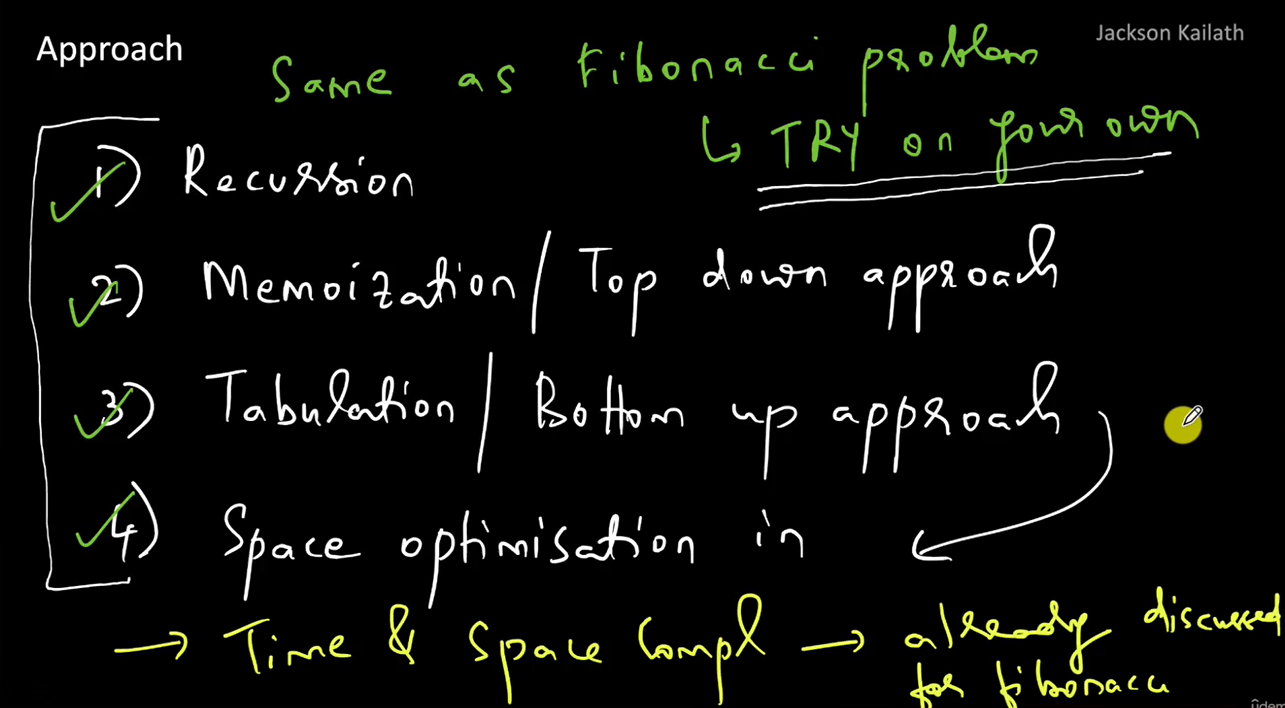 Approach
Jackson Kailath
Same as Fibonacci problem
↳ TRY on your own
1) Recursion
2) Memoization / Top down approach
3) Tabulation / Bottom up approach
4) Space optimisation in
→ Time & Space Compl → already discussed
for fibonacci